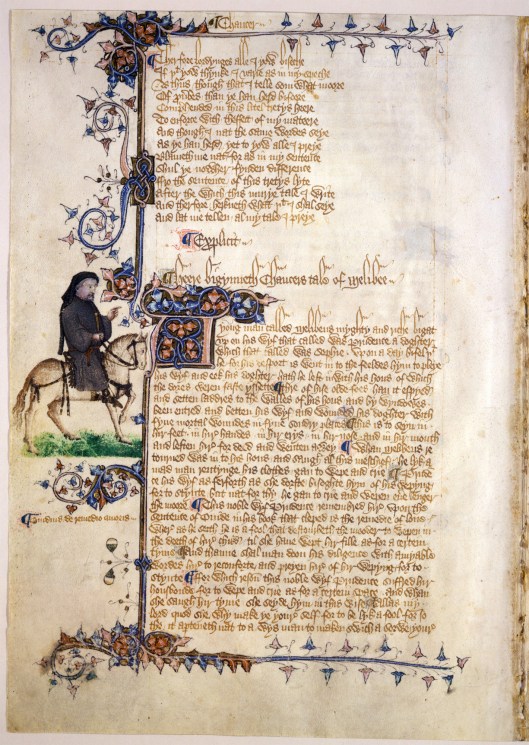 Chaucer
Therfore lordynges alle I yow biseche
If þt yow thynke I varie as in my speche
As thus though that I telle som what moore
Of prouerbes than ye han herd bifoore
Comprehended in this litel tretys heere
To enforce with theffect of my mateere
And though I nat the same wordes seye
As ye han herd yet to yow alle I preye
Blameth me nat for as in my sentence
Shul ye nowher fynden difference
Fro the sentence of this tretys lyte
After the which this murye tale I write
And therfore herkneth what þt I shal seye
And lat me tellen al my tale I preye
Explicit
Heere bigynneth Chaucers tale of Melibee
A yong man called Melibeus myghty and riche bigat
vp on his wyf that called was Prudence a doghter
which that called was Sophie Vpon a day bifel þt
he for his desport is went in to the feeldes hym to pleye
his wyf and eek his doghter hath he left in with his hous of which
the dores weren faste yshette thre of his olde foos han it espyed
and setten laddres to the walles of his hous and by wyndowes
been entred and betten his wyf and wounded his doghter with
fyue mortal woundes in fyue sondry places this is to seyn in
hir feet in hir handes in hir erys in hir nose and in hir mouth
and leften hir for deed and wenten awey Whan Melibeus re
torned was in to his hous and saugh al this meschief he lyk a
mad man rentynge his clothes gan to wepe and crie Prude
his wyf as ferforth as she dorste bisoghte hym of his wepyng
for to stynte but nat for thy he gan to crie and wepen euer lenger
the moore This noble wyf Prudence remembred hir vpon the
sentence of Ouide in his book that cleped is the remedie of loue
wher as he seith he is a fool that destourbeth the mooder to wepen in
the deeth of hir child til she haue wept hir fille as for a certein
tyme and thanne shal man doon his diligence with amyable
wordes hir to reconforte and preyen hir of hir wepyng for to
stynte For which reson this noble wyf Prudence suffred hir
housbonde for to wepe and crie as for a certein space and whan
she saugh hir tyme she seyde hym in this wise Allas my
lord quod she why make ye your self for to be lyk a fool for so
the it aperteneth nat to a wys man to maken swich a sorwe your
Ouidius de remedio amoris